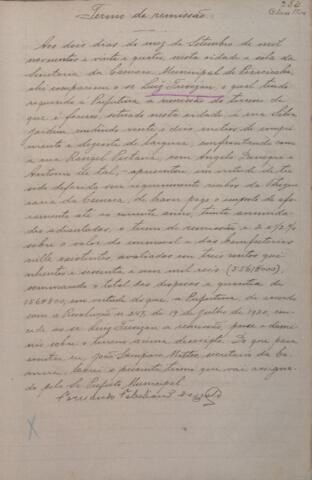 Termo de remissão
Aos dois dias do mez de Setembro de mil
novecentos e vinte e quatro, nesta cidade e sala da
Secretaria da Camara Municipal de Piracicaba,
ahi compareceu o sr. Luiz Trevizan, o qual tendo
requerido á Prefeitura a remissão do terreno de
que é foreiro, situado nesta cidade, á rua Silva
Jardim medindo vinte e dois metros de compri
mento e dezesete de largura, confrontando com
a rua Rangel Pestana, com Angelo
Antonio de tal, apresentou em virtude de ter
sido deferido seu requerimento recibos da Thesou
raria da Camara, de haver pago o imposto de afora
mento até o corrente anno, trinta annuida
des adiantadas, o termo de remissão e 2 1/2 %
sobre o valor do immovel e das bemfeitorias
nelle existentes, avaliados em tres contos qui
nhentos e sessenta e um mil reis (3:561$000),
sommando o total das despezas a quantia de
156$800, em virtude do que, a Prefeitura, de accordo
com a Resolução n. 247, de 19 de Julho de 1920, con
cede ao sr. Luiz Trevizan a remissão, posse e domi
nio sobre o terreno acima descripto. Do que para
constar eu, João Sampaio Mattos, secretario da Ca
mara, lavrei o presente termo que vai assigna
do pelo sr. Prefeito Municipal.
Fernando Febeliano da Costa
X